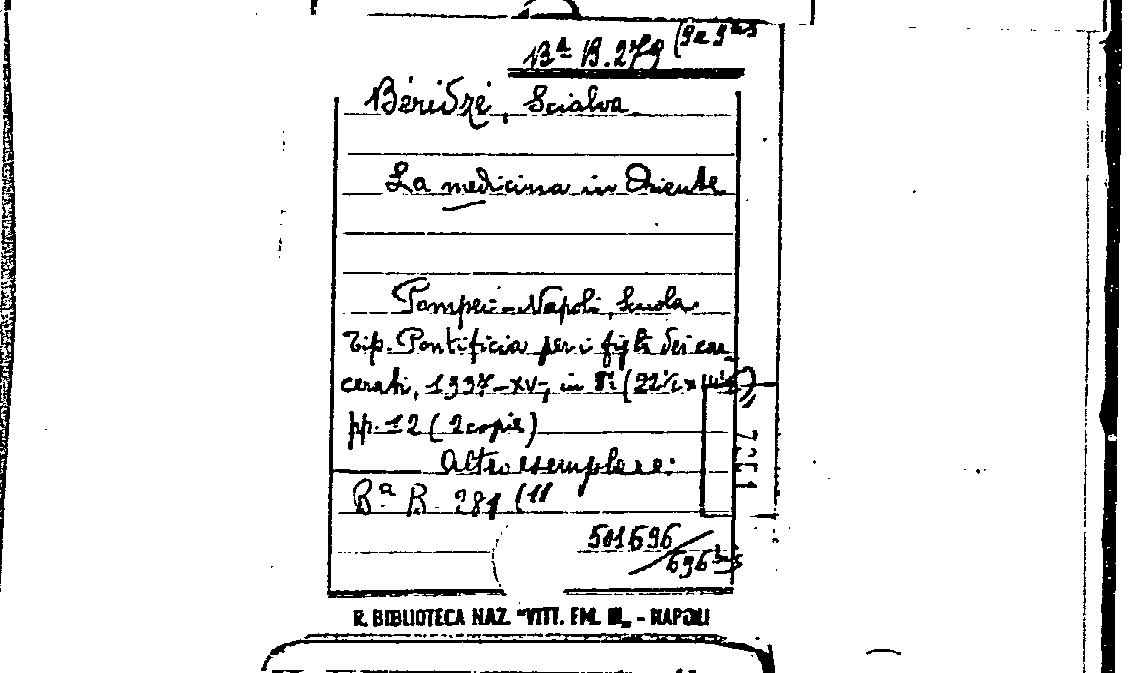 Bª B. 279 (9 e 9 bis
Béridzé, Scialva
La medicina in Oriente
Pompei-Napoli, Scuola
Tip. Pontificia per i figli dei car-
cerati, 1937-XV-, in 8º (22½ x
pp. 12 (2 copie)
Altro esemplare:
Bª B. 281 (11
501696/
696 bis
R. BIBLIOTECA NAZ. "VITT. EM. III„ - NAPOLI